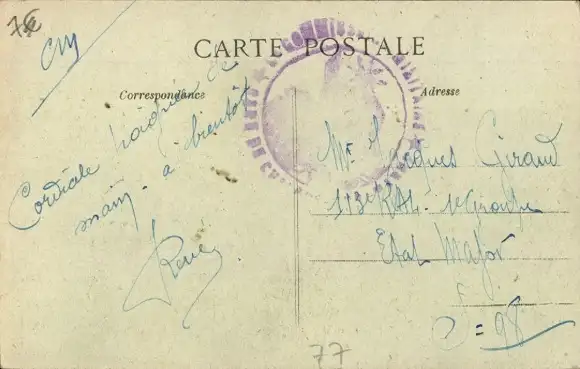 7€
CM
CARTE POSTALE
Correspondance
Adresse
Cordiale poignée de
main. a bientôt
René
Mr Jacques Giraud
113e RAL. 1er Groupe
Etat Major
77